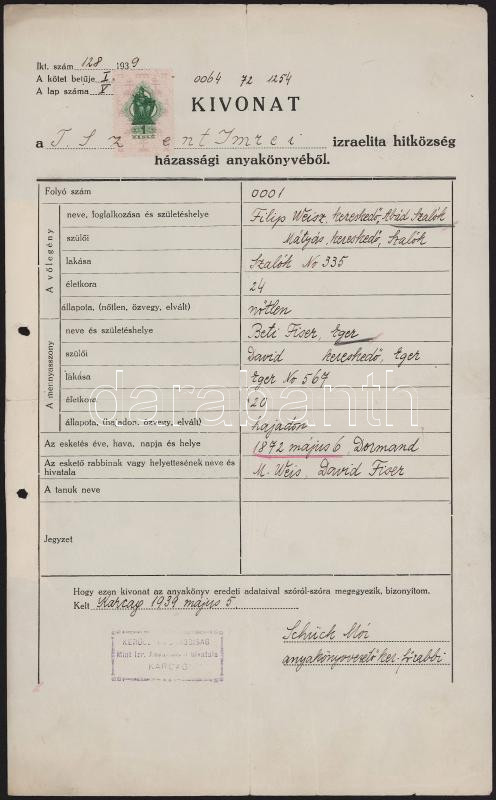 Ikt. szám 128 1939
A kötet betűje I.
A lap száma V
0064 72 1254
1
KIVONAT
a T. Szentimrei izraelita hitközség
házassági anyakönyvéből.
Folyó szám 0001
A vőlegény
neve, foglalkozása és születéshelye Filip Weisz, kereskedő, Abád Szalók
szülői Mátyás, kereskedő, Szalók
lakása Szalók No 335
életkora 24
állapota, (nőtlen, özvegy, elvált) nőtlen
A mennyasszony
neve és születéshelye Beti Fiser, Eger
szülői David kereskedő, Eger
lakása Eger No 567
életkora 20
állapota, (hajadon, özvegy, elvált) hajadon
Az esketés éve, hava, napja és helye 1872 május 6, Dormand
Az eskető rabbinak vagy helyettesének neve és hivatala M. Weis, David Fiser
A tanuk neve
Jegyzet
darabanth
Hogy ezen kivonat az anyakönyv eredeti adataival szóról-szóra megegyezik, bizonyítom.
Kelt Karcag 1939 május 5.
Schück Mór
anyakönyvvezető ker. főrabbi
Mint izr. hivatala
KARCAG